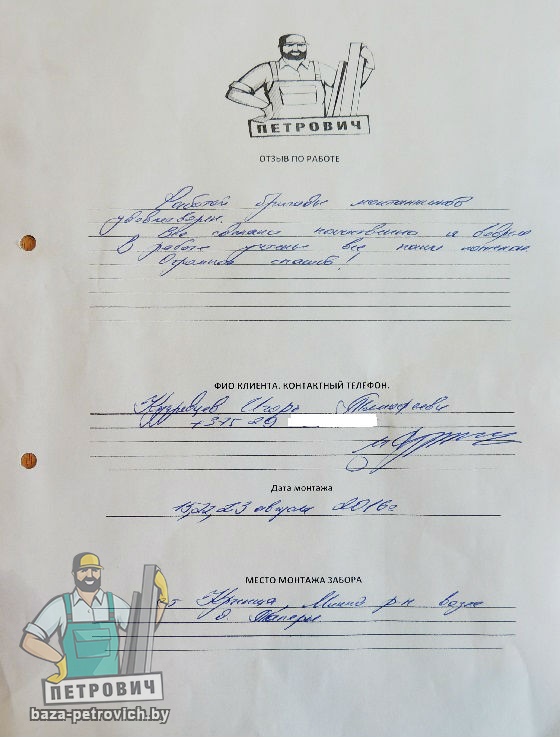 ПЕТРОВИЧ
ОТЗЫВ ПО РАБОТЕ
Работой бригады монтажников
удовлетворен.
Все сделано качественно и
В работе учтены все наши
Огромное спасибо!
ФИО КЛИЕНТА. КОНТАКТНЫЙ ТЕЛЕФОН.
Игорь Тимофеевич
+375 29
Дата монтажа
августа 2016г
МЕСТО МОНТАЖА ЗАБОРА
Криница, Минский р-н возле
д.
ПЕТРОВИЧ
baza-petrovich.by